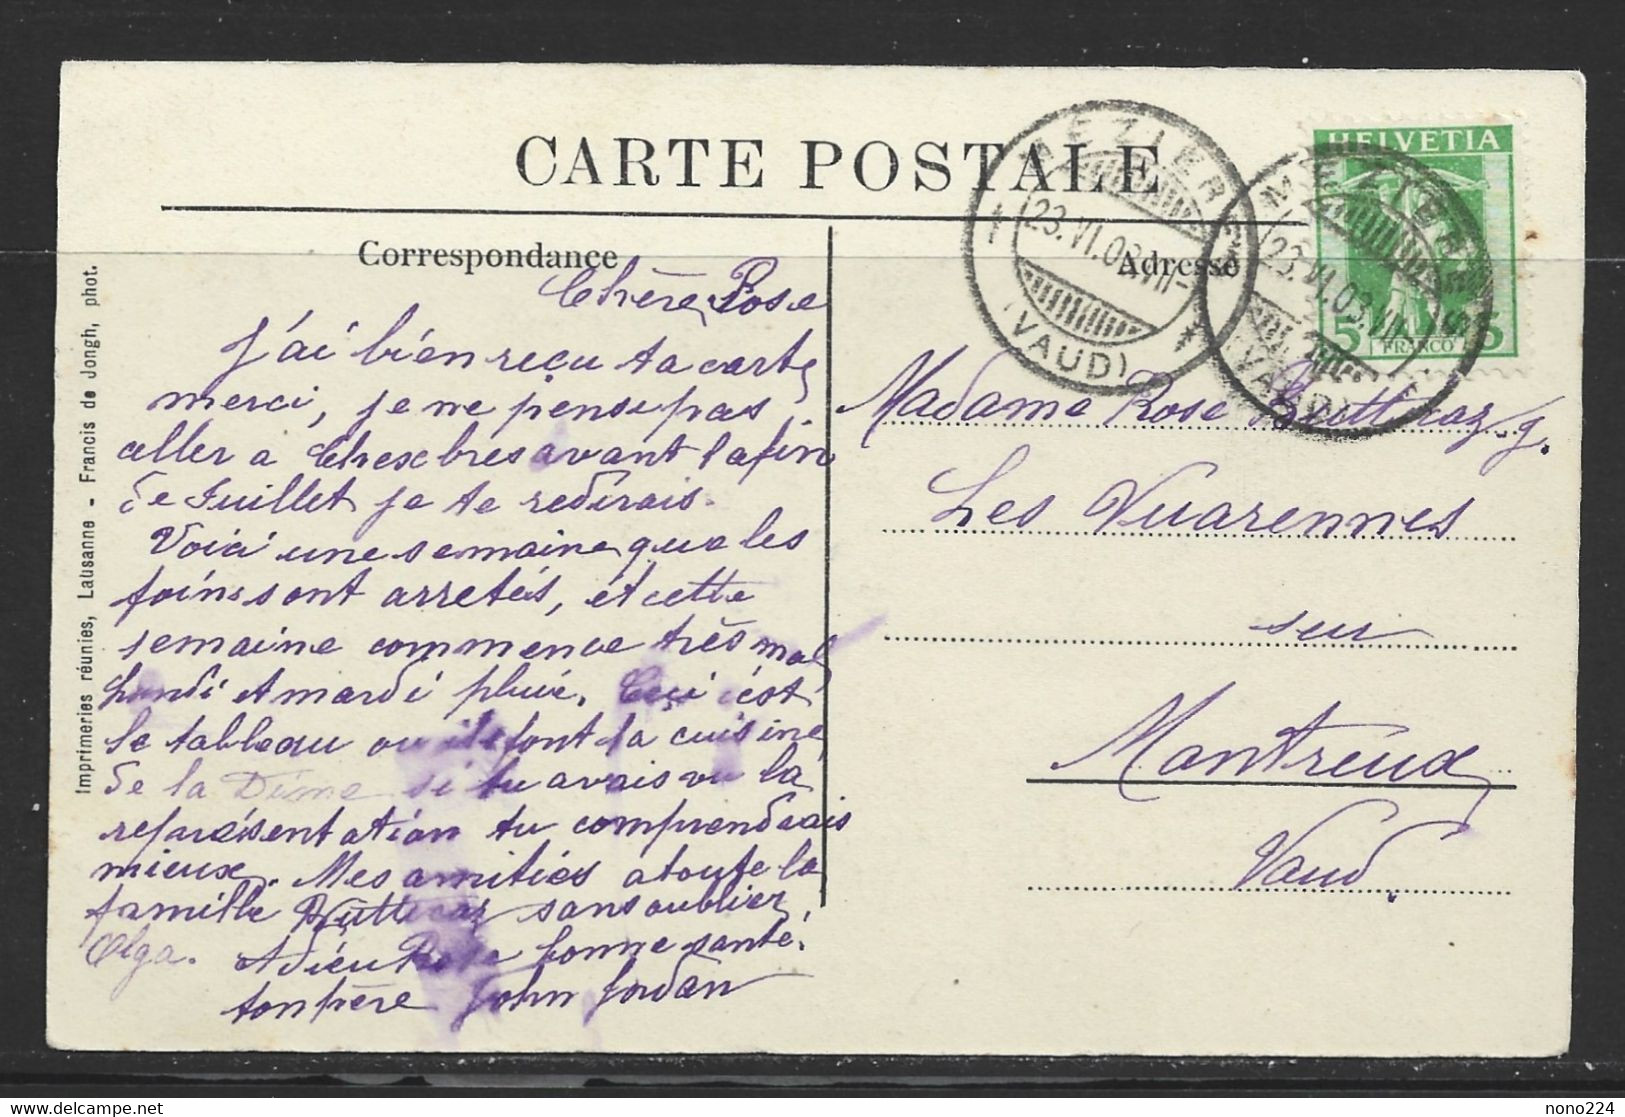 CARTE POSTALE
Correspondance
Adresse
MEZIERES
23.VI.08.VII-
(VAUD)
MEZIERES
23.VI.08.VII-
(VAUD)
HELVETIA
5 FRANCO 5
Imprimeries réunies, Lausanne - Francis de Jongh, phot.
Chère Rose
J'ai bien reçu ta carte
merci, je ne pense pas
aller a Chexbres avant la fin
de Juillet je te redirais.
Voici une semaine que les
foins sont arretés, et cette
semaine commence très mal
Lundi et mardi pluie. Ceci c'est
le tableau ou ils font la cuisine
de la Dime si tu avais vu la
représentation tu comprendrais
mieux. Mes amitiés a toute la
famille Butticaz sans oublier
Olga. Adieu Rose bonne santé.
ton père John Jordan
Madame Rose Butticaz. g.
Les Vuarennes
sur
Montreux
Vaud.
nono224